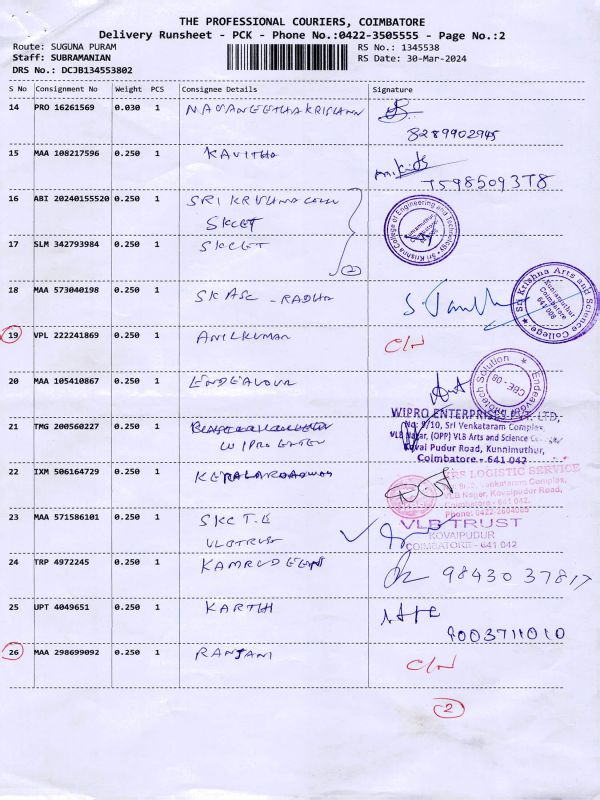 THE PROFESSIONAL COURIERS, COIMBATORE
Delivery Runsheet - PCK - Phone No.:0422-3505555 - Page No.:2
Route: SUGUNA PURAM
RS No.: 1345538
Staff: SUBRAMANIAN
RS Date: 30-Mar-2024
DRS No.: DCJB134553802
S No Consignment No Weight PCS Consignee Details Signature
14 PRO 16261569 0.030 1 NAVANEETHAKRISHNAN
8289902945
15 MAA 108217596 0.250 1 KAVITHA
7598509378
16 ABI 20240155520 0.250 1 SRI KRISHNA COLL
SKCET
17 SLM 342793984 0.250 1 SKCET
2
Sri Krishna College of Engineering and Technology
Kuniamuthur
Coimbatore
18 MAA 573040198 0.250 1 SKASC - RADHA
Sri Krishna Arts and Science College
Kuniamuthur
Coimbatore
641 008
19 VPL 222241869 0.250 1 ANILKUMAR C/N
20 MAA 105410867 0.250 1 ENDEAVOUR
CBE - 08
21 TMG 200560227 0.250 1
WIPRO ENTER
WIPRO ENTERPRISES PVT. LTD,
No: 9/10, Sri Venkataram Complex,
VLB Nagar, (OPP) VLB Arts and Science
Kovai Pudur Road, Kunnimuthur,
Coimbatore - 641 042
22 IXM 506164729 0.250 1 KERALAROADWAYS
LOGISTIC SERVICE
Venkataram Complex,
VLB Nagar, Kovaipudur Road,
Coimbatore - 641 042.
Phone: 0422-2604065
23 MAA 571586101 0.250 1 SKC T.E
VLBTRUST
VLB TRUST
KOVAIPUDUR
COIMBATORE - 641 042
24 TRP 4972245 0.250 1 KAMRUDEEN
98430 37817
25 UPT 4049651 0.250 1 KARTHI
9003711010
26 MAA 298699092 0.250 1 RANJANI C/N
2